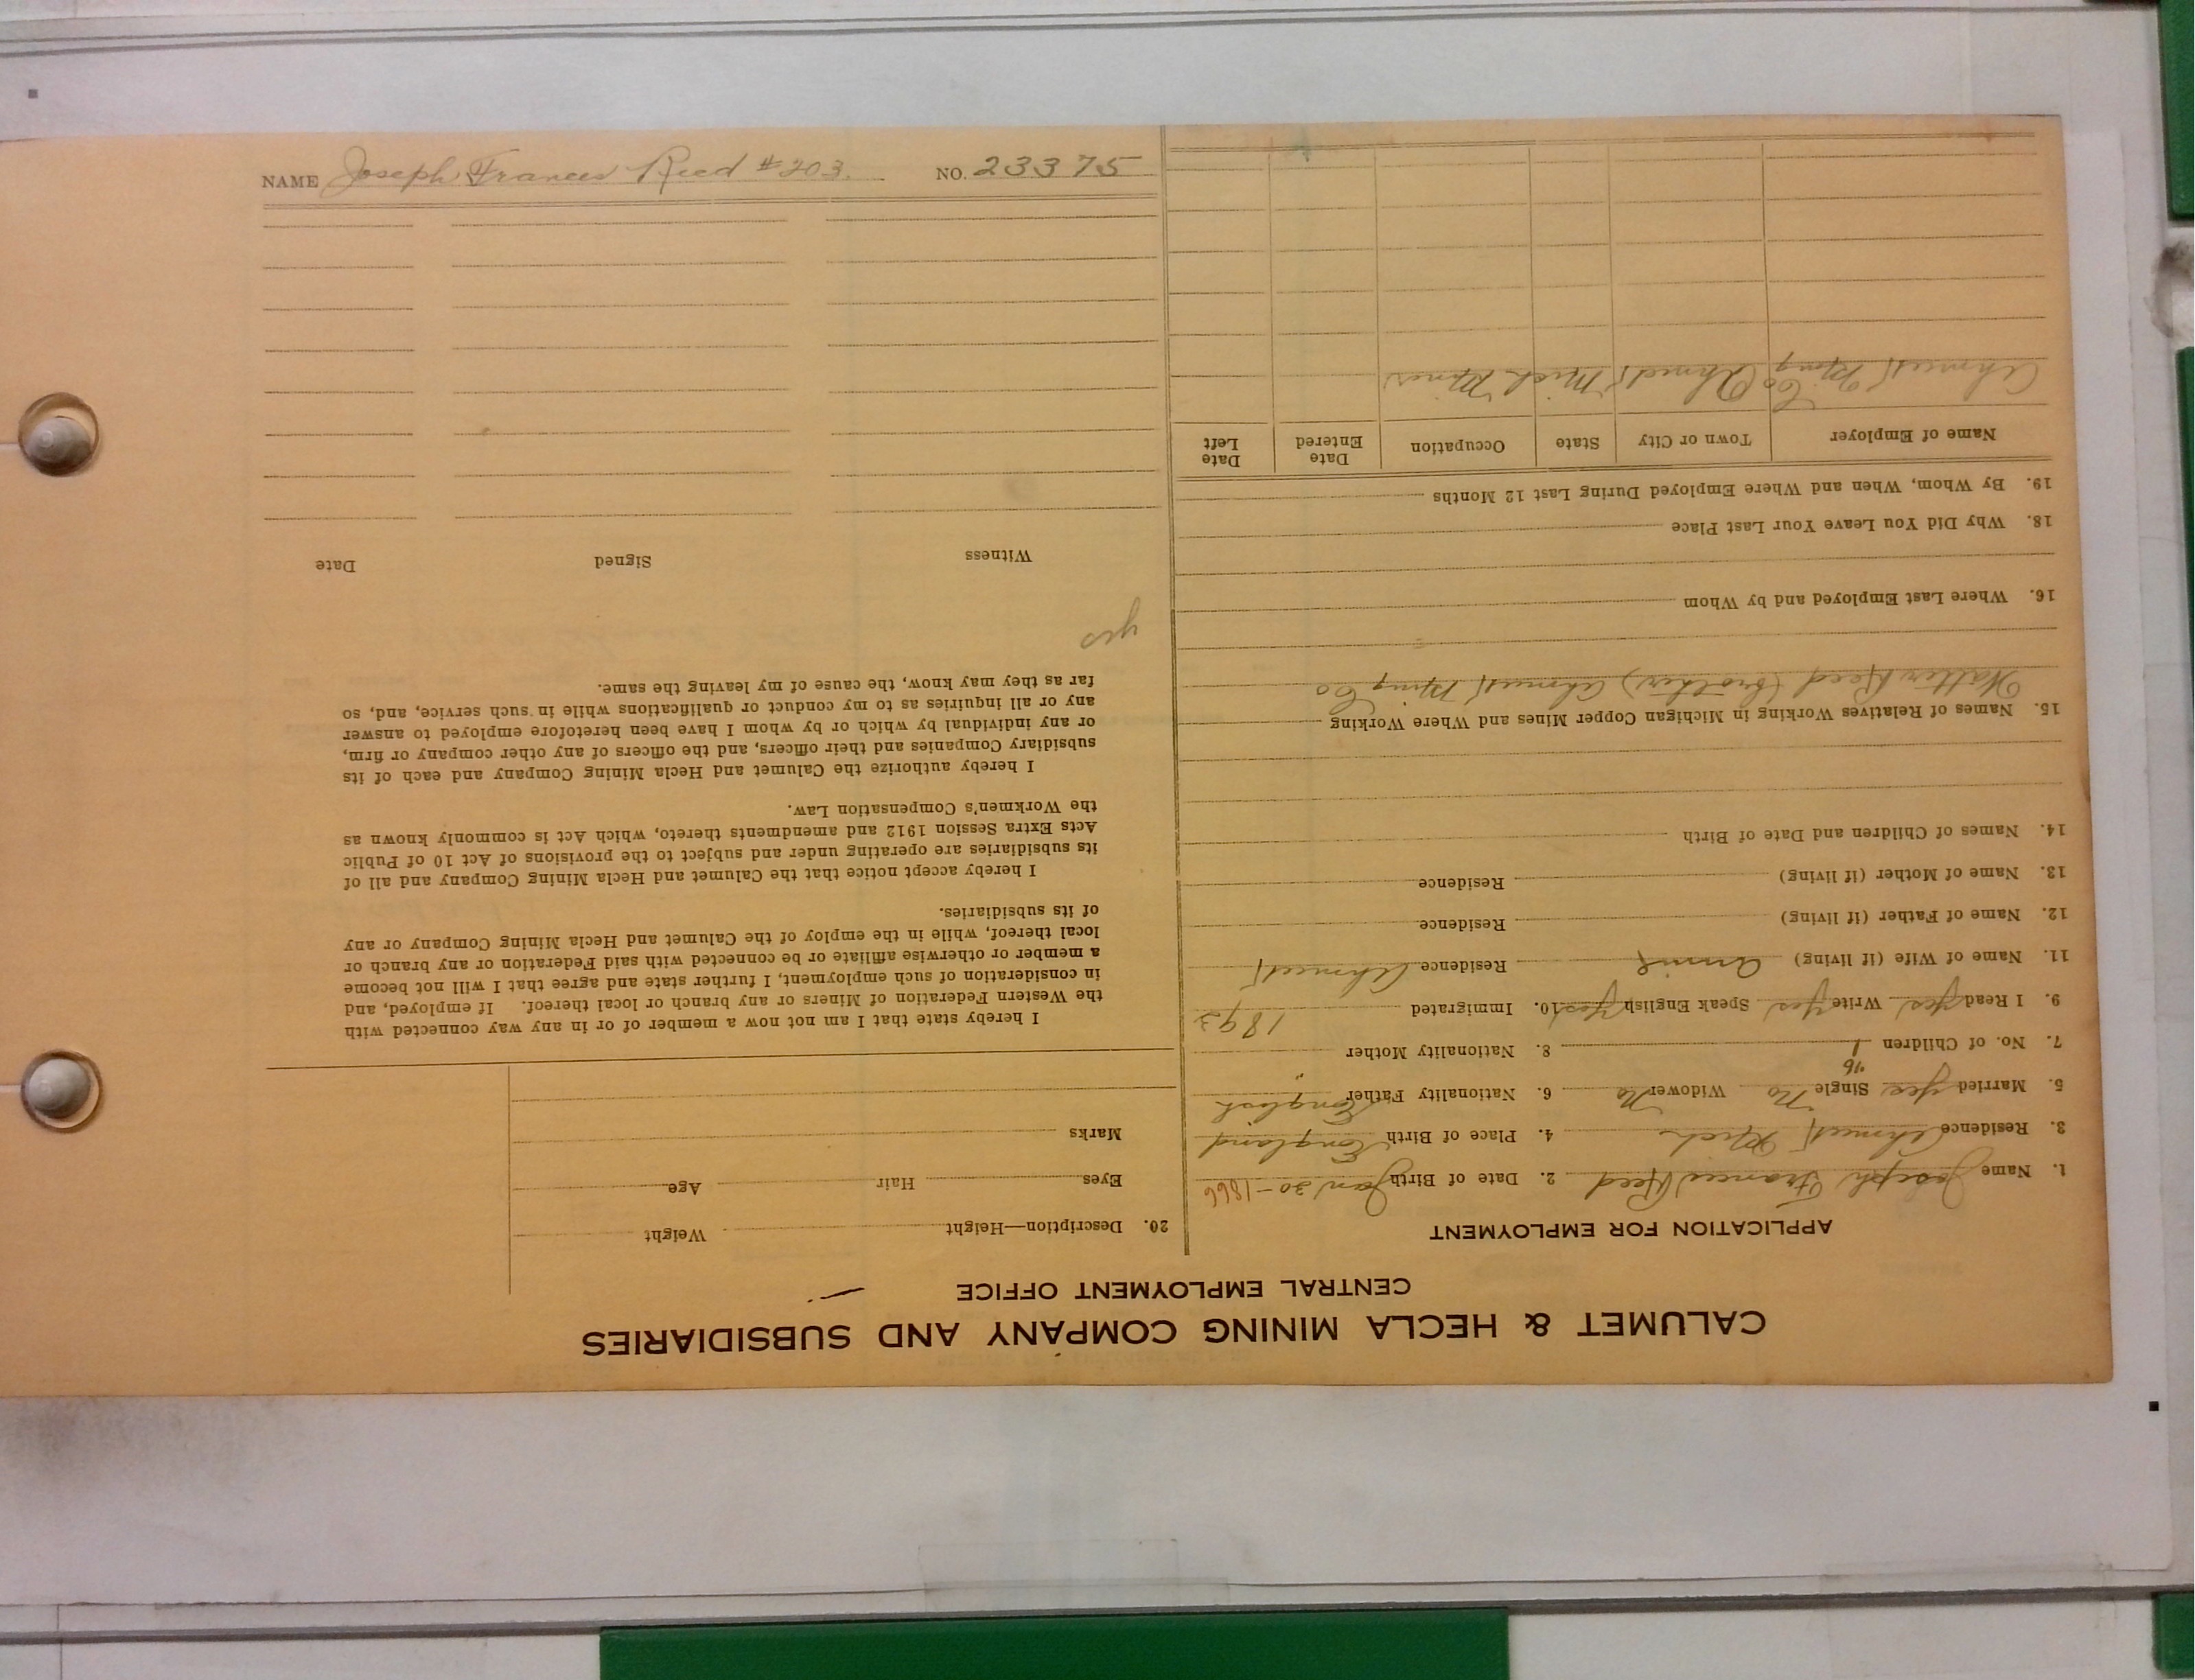 NAME Joseph Francis Reed #203. NO. 23375
CALUMET & HECLA MINING COMPANY AND SUBSIDIARIES
CENTRAL EMPLOYMENT OFFICE
APPLICATION FOR EMPLOYMENT
1. Name Joseph Francis Reed 2. Date of Birth Jan 30-1866
3. Residence Ahmeek Mich 4. Place of Birth England
5. Married yes Single No Widower No 6. Nationality Father English
7. No. of Children 1 8. Nationality Mother "
9. I Read yes Write yes Speak English yes 10. Immigrated 1893
11. Name of Wife (if living) Annie Residence Ahmeek
12. Name of Father (if living) Residence
13. Name of Mother (if living) Residence
14. Names of Children and Date of Birth
15. Names of Relatives Working in Michigan Copper Mines and Where Working
Walter Reed (brother) Ahmeek Mining Co
16. Where Last Employed and by Whom
18. Why Did You Leave Your Last Place
19. By Whom, When and Where Employed During Last 12 Months
Name of Employer Town or City State Occupation Date Entered Date Left
Ahmeek Mining Co Ahmeek Mich Miner
20. Description—Height Weight
Eyes Hair Age
Marks
I hereby state that I am not now a member of or in any way connected with
the Western Federation of Miners or any branch or local thereof. If employed, and
in consideration of such employment, I further state and agree that I will not become
a member or otherwise affiliate or be connected with said Federation or any branch or
local thereof, while in the employ of the Calumet and Hecla Mining Company or any
of its subsidiaries.
I hereby accept notice that the Calumet and Hecla Mining Company and all of
its subsidiaries are operating under and subject to the provisions of Act 10 of Public
Acts Extra Session 1912 and amendments thereto, which Act is commonly known as
the Workmen's Compensation Law.
I hereby authorize the Calumet and Hecla Mining Company and each of its
subsidiary Companies and their officers, and the officers of any other company or firm,
or any individual by which or by whom I have been heretofore employed to answer
any or all inquiries as to my conduct or qualifications while in such service, and, so
far as they may know, the cause of my leaving the same.
yes
Witness Signed Date